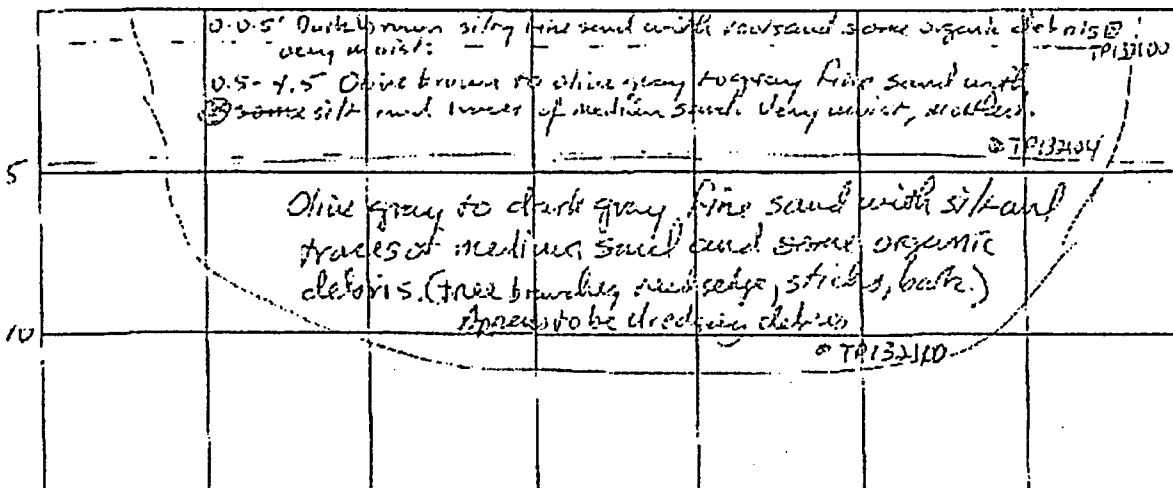 0-0.5' Dark brown silty fine sand with and some organic debris
very moist.
TP132100
0.5-4.5 Olive brown to olive gray to gray fine sand with
some silt and traces of medium sand. Very moist,
TP132104
5
Olive gray to dark gray fine sand with silt and
traces of medium sand and some organic
debris. (tree sticks, bark.)
Appears to be dredging debris
10
TP132110